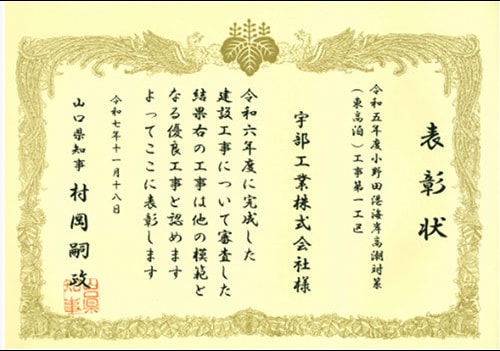 表彰状
令和五年度小野田港海岸高潮対策
(東高泊)工事第一工区
宇部工業株式会社様
令和六年度に完成した
建設工事について審査した
結果右の工事は他の模範と
なる優良工事と認めます
よってここに表彰します
令和七年十一月十八日
山口県知事 村岡嗣政
山口県
知事